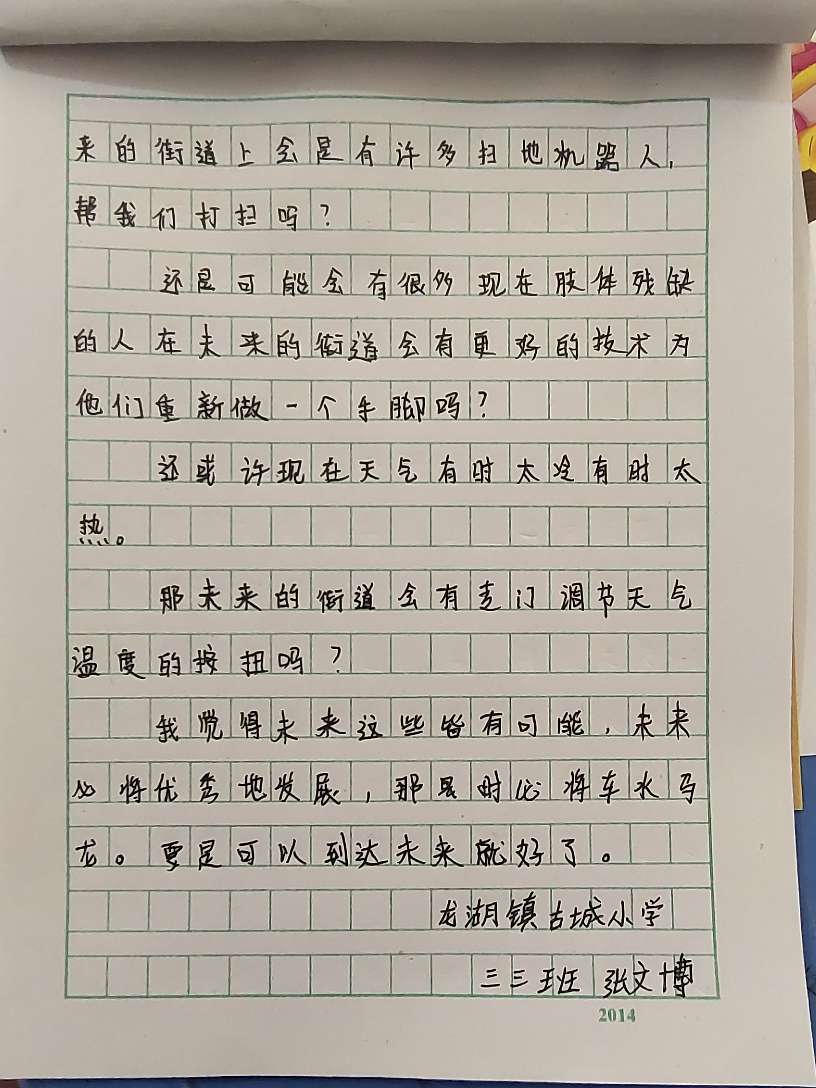 来的街道上会是有许多扫地机器人，
帮我们打扫吗？
还是可能会有很多现在肢体残缺
的人在未来的街道会有更好的技术为
他们重新做一个手脚吗？
还或许现在天气有时太冷有时太
热。
那未来的街道会有专门调节天气
温度的按扭吗？
我觉得未来这些皆有可能，未来
必将优秀地发展，那是时必将车水马
龙。要是可以到达未来就好了。
龙湖镇古城小学
三三班 张文博
2014